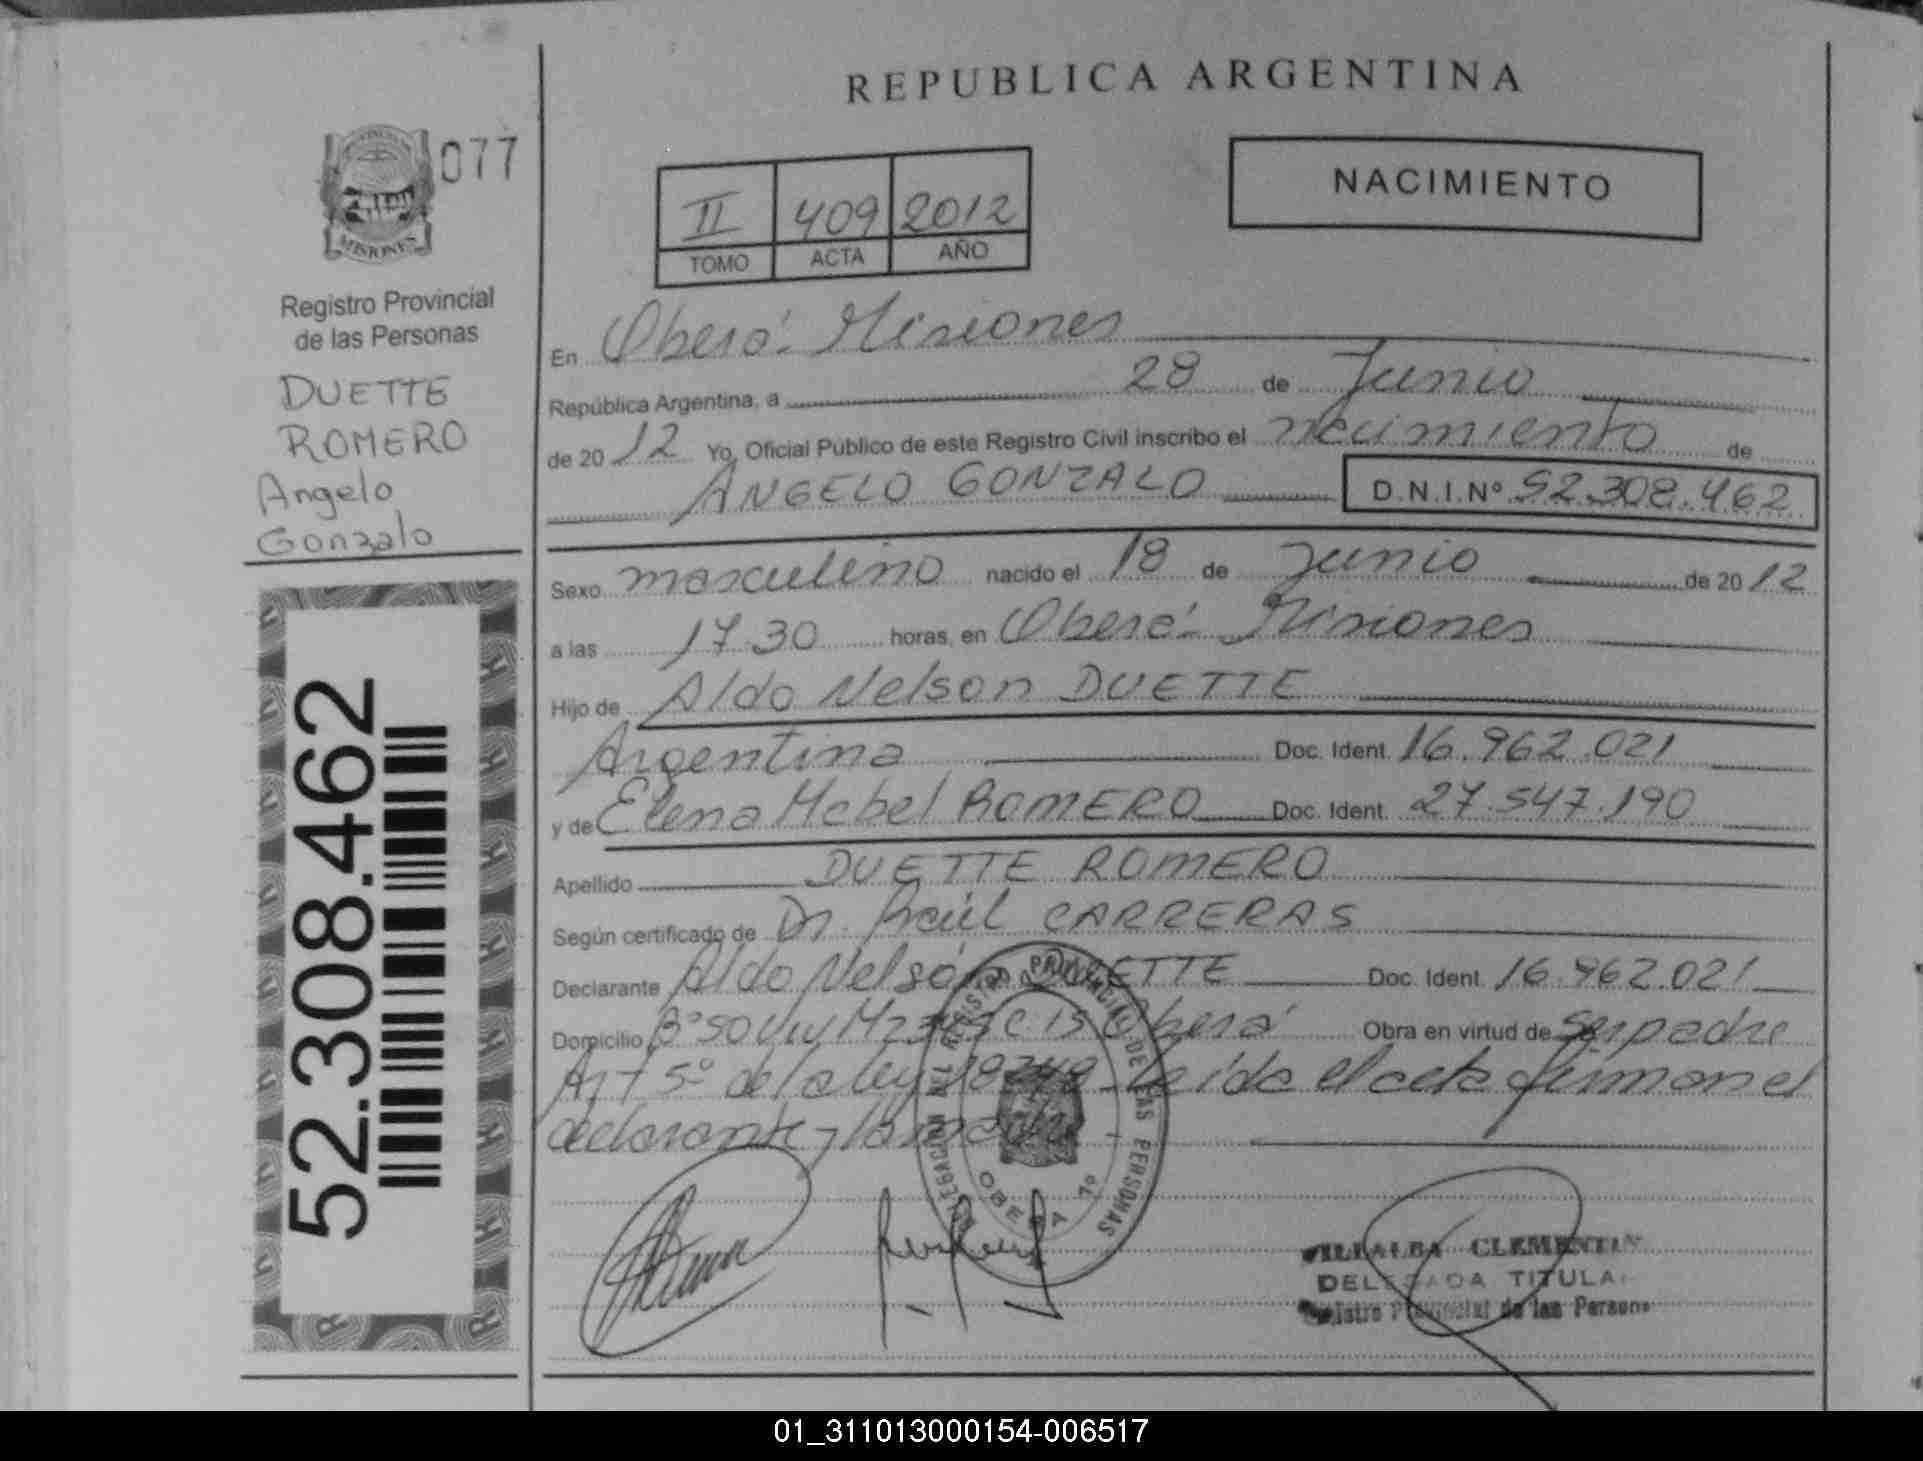 REPUBLICA ARGENTINA
077
MISIONES
Registro Provincial
de las Personas
DUETTE
ROMERO
Angelo
Gonzalo
52.308.462
II 409 2012
TOMO ACTA AÑO
NACIMIENTO
En Oberá - Misiones
República Argentina, a 28 de Junio
de 2012 Yo, Oficial Público de este Registro Civil inscribo el nacimiento de
ANGELO GONZALO D.N.I.Nº 52.308.462
Sexo masculino nacido el 18 de Junio de 2012
a las 17.30 horas, en Oberá - Misiones
Hijo de Aldo Nelson DUETTE
Argentina Doc. Ident. 16.962.021
y de Elena Mabel ROMERO Doc. Ident. 27.547.190
Apellido DUETTE ROMERO
Según certificado de Dr. Raúl CARRERAS
Declarante Aldo Nelson DUETTE Doc. Ident. 16.962.021
Domicilio Bº 50 Viv Mz Oberá Obra en virtud de Ser padre
Art 5º de la ley 18248 - Leída el acta firman el
declarante y la madre -
DELEGACION DEL REGISTRO PROVINCIAL DE LAS PERSONAS
OBERA
VILLALBA CLEMENTIN
DELEGADA TITULAR
Registro Provincial de las Persona
01_311013000154-006517